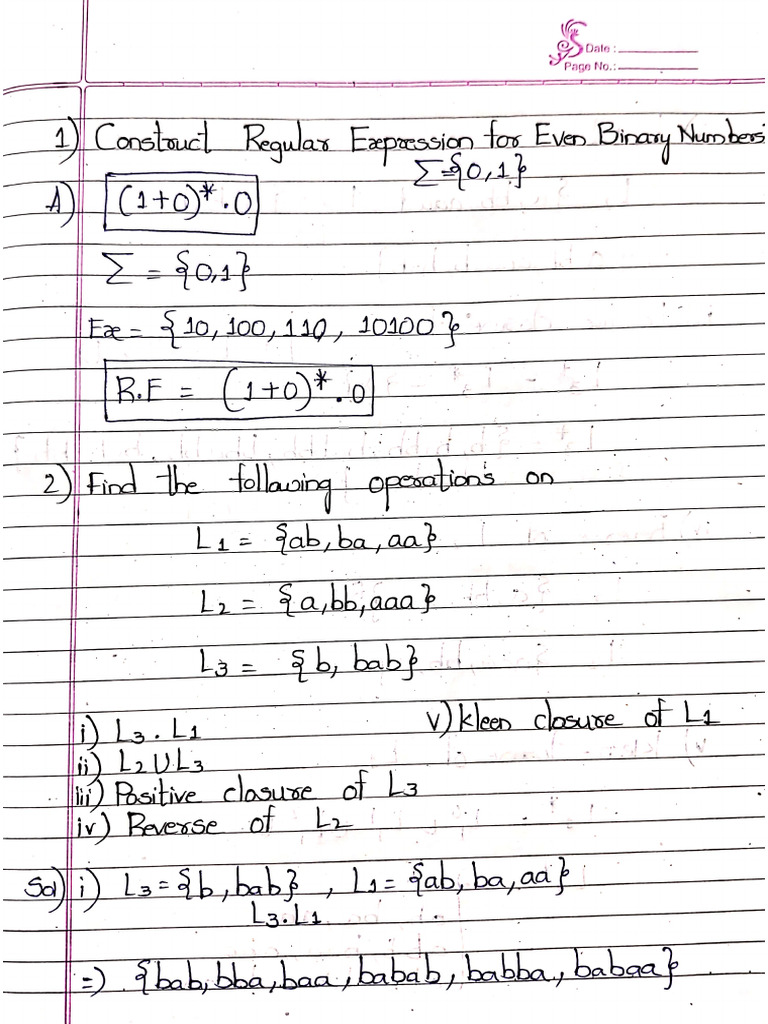 Date :
Page No.:
1) Construct Regular Expression for Even Binary Numbers
Σ={0,1}
A) (1+0)*.0
Σ = {0,1}
Ex = {10, 100, 110, 10100}
R.E = (1+0)*.0
2) Find the following operations on
L1 = {ab, ba, aa}
L2 = {a, bb, aaa}
L3 = {b, bab}
i) L3 . L1
v) kleen closure of L1
ii) L2 U L3
iii) Positive closure of L3
iv) Reverse of L2
Sol) i) L3 = {b, bab} , L1 = {ab, ba, aa}
L3.L1
=) {bab, bba, baa, babab, babba, babaa}